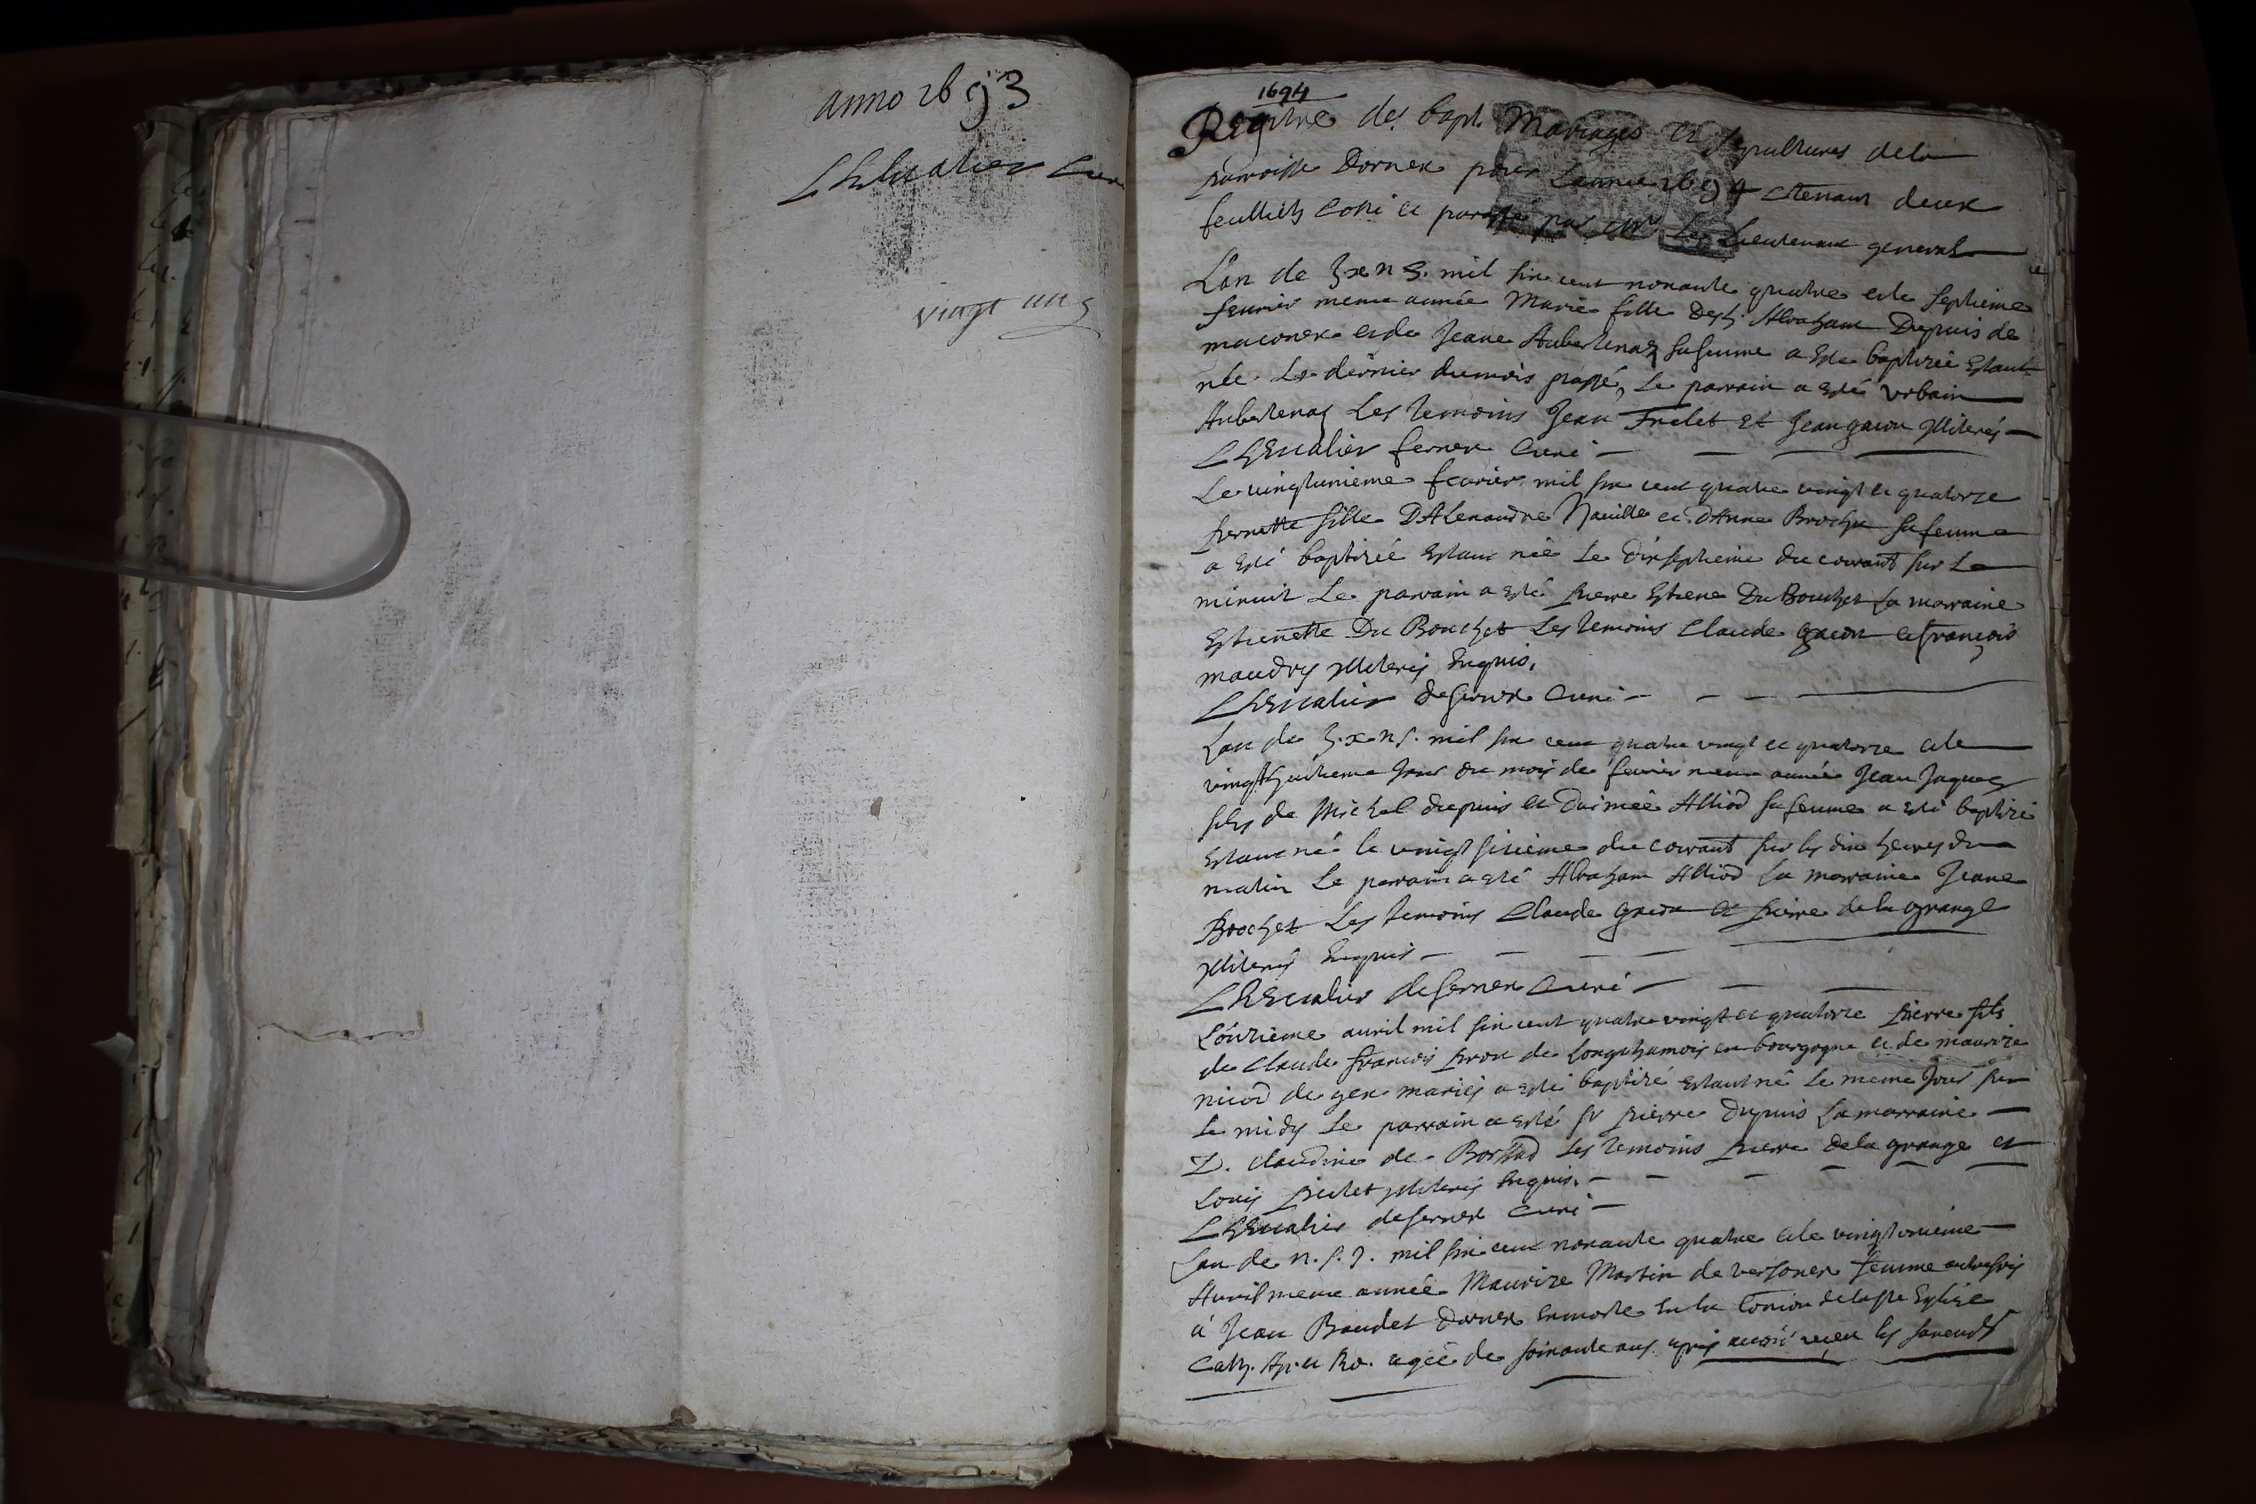 anno 1693
Chevalier Curé
vingt un
1694
Registre des bapt. Mariages et sepultures de la
parroisse Dornex pour Lannee 1694 Contenant deux
feulliets Cotté et paraffé par Mr Le Lieutenant general
L'an de mil six cent nonante quatre et le septieme
fevrier meme année Marie fille Abraham Dupuis de
maconex et de Jeane Aubertenas sa femme a esté baptizée Estant
née Le dernier du mois passé, Le parrain a esté Urbain
Aubertenas Les temoins Jean Frelet Et Jean gacon Illiterés
Chevalier Curé
Le vingtunieme fevrier mil six cent quatre vingt et quatorze
pernette fille DAlexandre et dAnne Brochu sa femme
a esté baptizée Estant née Le dixseptieme du courant sur La
minuit Le parrain a esté pierre Estiene Du Bouchet La marraine
Estienette Du Bouchet Les temoins Claude gacon et françois
maudry Illiterés Enquis.
Chevalier de fernex Curé
Lan de mil six cent quatre vingt et quatorze et le
vingthuitieme Jour du mois de fevrier meme année Jean Jaques
fils de Michel dupuis et Daimée Alliod sa femme a esté baptizé
Estant né le vingt sixieme du courant sur les dix heures du
matin Le parrain a esté Abraham Alliod La marraine Jeane
Bochet Les temoins Claude gacon et pierre de la grange
Illiterés Enquis
Chevalier de fernex Curé
L'onzieme avril mil six cent quatre vingt et quatorze pierre fils
de Claude françois de Longchamois en bourgogne et de maurize
nicod de gex mariés a esté baptizé estant né Le meme Jour sur
Le midy Le parrain a esté Sr pierre Dupuis La marraine
D. claudine de Les temoins pierre de la grange et
Louis pictet Illiterés Enquis.
Chevalier de fernex Curé
Lan de mil six cent nonante quatre et le vingtonieme
Avril meme année Maurize Martin de versonex femme autrefois
à Jean Baudet Dornex est morte En la Comion de la Ste Eglize
Cath. Ap. et Ro. agée de soixante ans apres avoir receu les sacemts